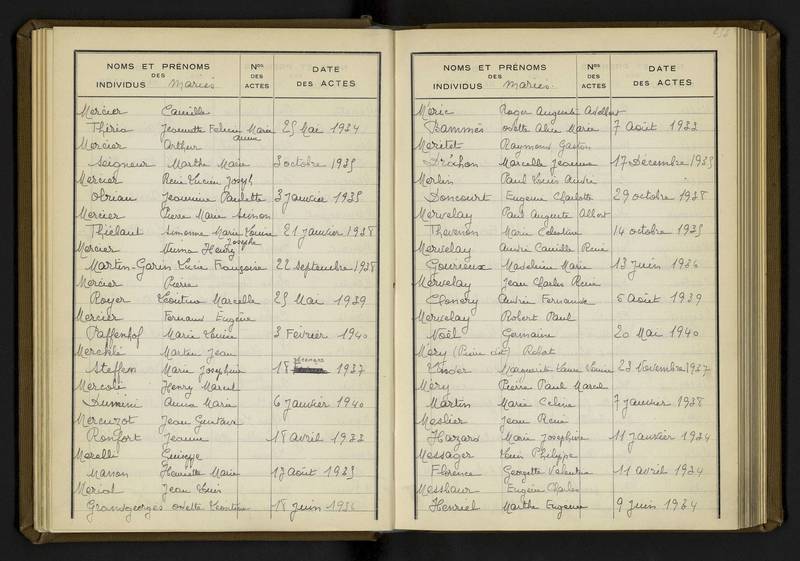 NOMS ET PRÉNOMS
DES
INDIVIDUS Mariés
Nos
DES
ACTES
DATE
DES ACTES
Mercier Camille
Thiria Jeannette Marie 25 Mai 1934
Anna
Mercier Arthur
Seigneur Marthe Marie 3 octobre 1935
Mercier René Lucien Joseph
Obriau Jeannine Paulette 3 janvier 1935
Mercier Pierre Marie Simon
Thiébaut Simonne Marie Louise 21 janvier 1938
Joseph
Mercier Numa Henry
Martin-Garin Lucie Françoise 22 septembre 1938
Mercier Pierre
Royer Léontine Marcelle 25 Mai 1939
Mercier Fernand Eugène
Paffenhof Marie Louise 3 Février 1940
Mercklé Martin Jean
Steffen Marie Joséphine 18 1937
Mercoli Henry Marcel
Dumini Anna Marie 6 janvier 1940
Mercuzot Jean Gustave
Ronfort Jeanne 18 avril 1933
Merelli Guiseppe
Manon Henriette Marie 17 août 1935
Meriot Jean Louis
Grandgeorges Odette Léontine 18 juin 1936
NOMS ET PRÉNOMS
DES
INDIVIDUS Mariés.
Nos
DES
ACTES
DATE
DES ACTES
Méric Roger Auguste Adelbert
Bammès Odette Alice Marie 7 Août 1933
Meritet Raymond Gaston
Dráhon Marcelle Jeanne 17 Décembre 1935
Merlin Paul Louis André
Doncourt Eugenie Charlotte 29 octobre 1938
Mervelay Paul Auguste Albert
Thevenon Marie Celestine 14 octobre 1935
Mervelay André Camille René
Gourieux Madeleine Marie 13 juin 1936
Mervelay Jean Charles René
Clonery Andrée Fernande 5 août 1939
Mervelay Robert Paul
Noël Germaine 20 Mai 1940
Méry Robert
Vinder Marguerite Louise 23 Novembre 1937
Méry Pierre Paul Marcel
Martin Marie Celine 7 janvier 1938
Meslier Jean René
Hazard Marie Josephine 11 janvier 1934
Messager Louis Philippe
Florence Georgette Valentine 11 avril 1934
Messbaur Eugène Charles
Henriel Marthe Eugenie 9 juin 1934